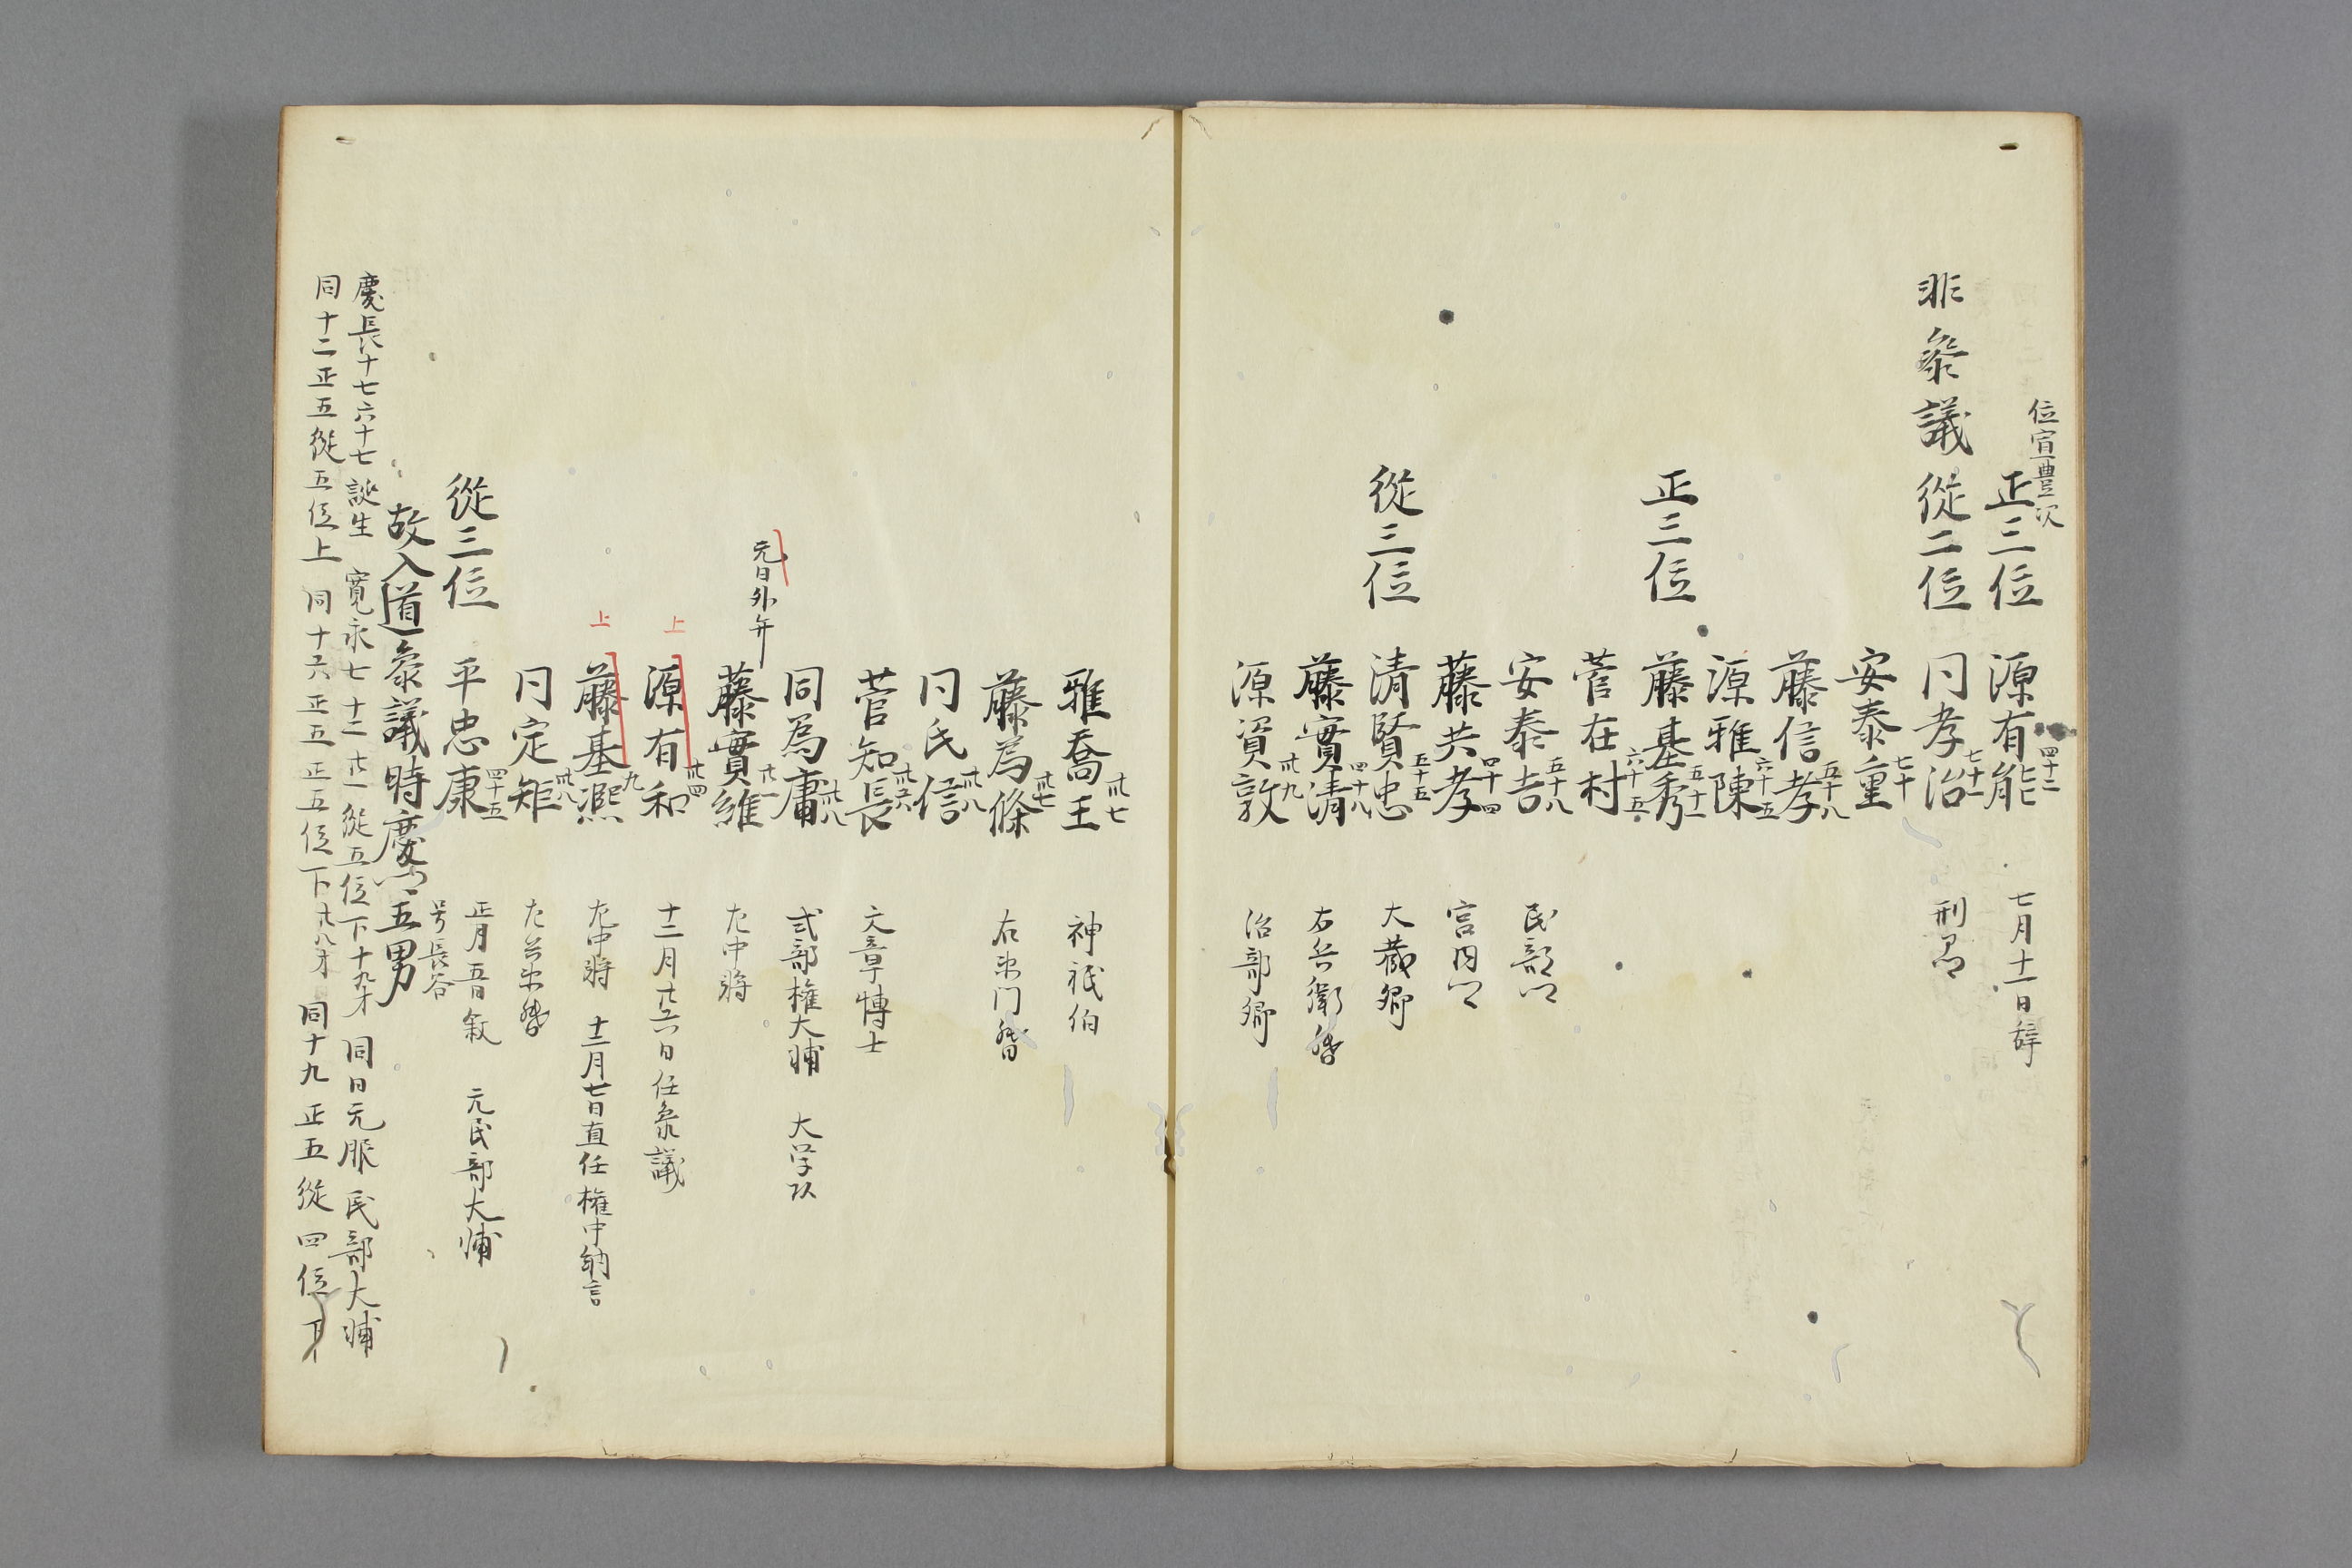 位宣豊次
正三位 源有能 四十二 七月十一日辞
非参議 従二位 同孝治 七十一 刑卩卿
安泰重 七十
藤信孝 五十八
源雅陳 六十五
正三位 藤基秀 五十一
菅在村 六十五
安泰吉 五十八 民部卿
藤共孝 四十四 宮内卿
従三位 清賢忠 五十五 大蔵卿
藤實清 四十八 右兵衛督
源資敦 卅九 治部卿
雅喬王 卅七 神祇伯
藤為條 卅七 右衛門督
同氏信 卅八
菅知長 卅六 文章博士
同為庸 卅八 式部権大輔 大学頭
元日外弁
藤實維 廿一 左中将
上 源有和 廿四 十二月廿六日任参議
上 藤基凞 九 左中将 十二月七日直任権中納言
同定矩 卅八 左兵衛督
従三位 平忠康 四十五 正月五日叙 元民部大輔
号長谷
故入道参議時慶卿五男
慶長十七六十七誕生 寛永七十二廿一従五位下十九才 同日元服 民部大輔
同十二正五従五位上 同十六正五正五位下廿八才 同十九正五従四位下